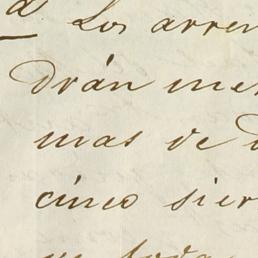 a Los arren
drán me
mas de
cinco sier